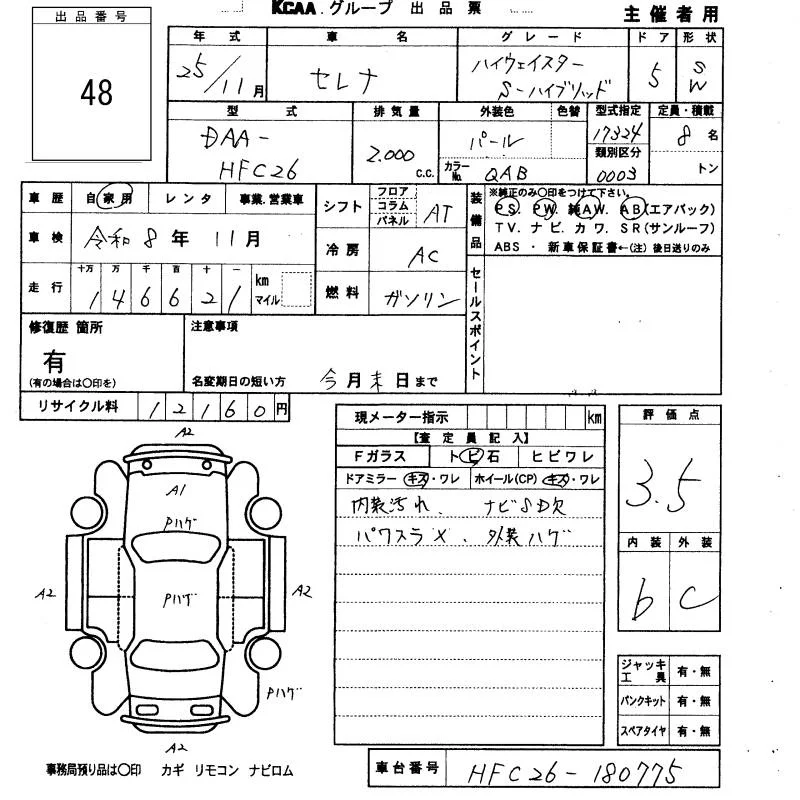 KCAA グループ 出品票
主催者用
出品番号
48
年式 車名 グレード ドア 形状
25/11月 セレナ ハイウェイスター S-ハイブリッド 5 SW
型式 排気量 外装色 色替 型式指定 定員・積載
DAA-HFC26 2.000 C.C. パール 17324 8名
カラーNo. QAB 類別区分 0003 トン
車歴 自家用 レンタ 事業.営業車
シフト フロア コラム パネル AT
装備品 ※純正のみ〇印をつけて下さい。
PS. PW. 純AW. AB(エアバック)
TV. ナビ. カワ. SR(サンルーフ)
ABS ・ 新車保証書←(注)後日送りのみ
車検 令和8年 11月
冷房 AC
走行 十万 万 千 百 十 一 km マイル
146621
燃料 ガソリン
セールスポイント
修復歴 箇所
有
(有の場合は〇印を)
注意事項
名変期日の短い方 今月末日まで
リサイクル料 12160円
現メーター指示 km
【査定員記入】
Fガラス トビ石 ヒビワレ
ドアミラー キズ・ワレ ホイール(CP) キズ・ワレ
内装汚れ、 ナビSD欠
パワスラ×、 外装ハゲ
評価点
3.5
内装 外装
b C
A2
A1
Pハゲ
A2 Pハゲ A2
Pハゲ
A2
ジャッキ工具 有・無
パンクキット 有・無
スペアタイヤ 有・無
事務局預り品は〇印 カギ リモコン ナビロム
車台番号 HFC26-180775